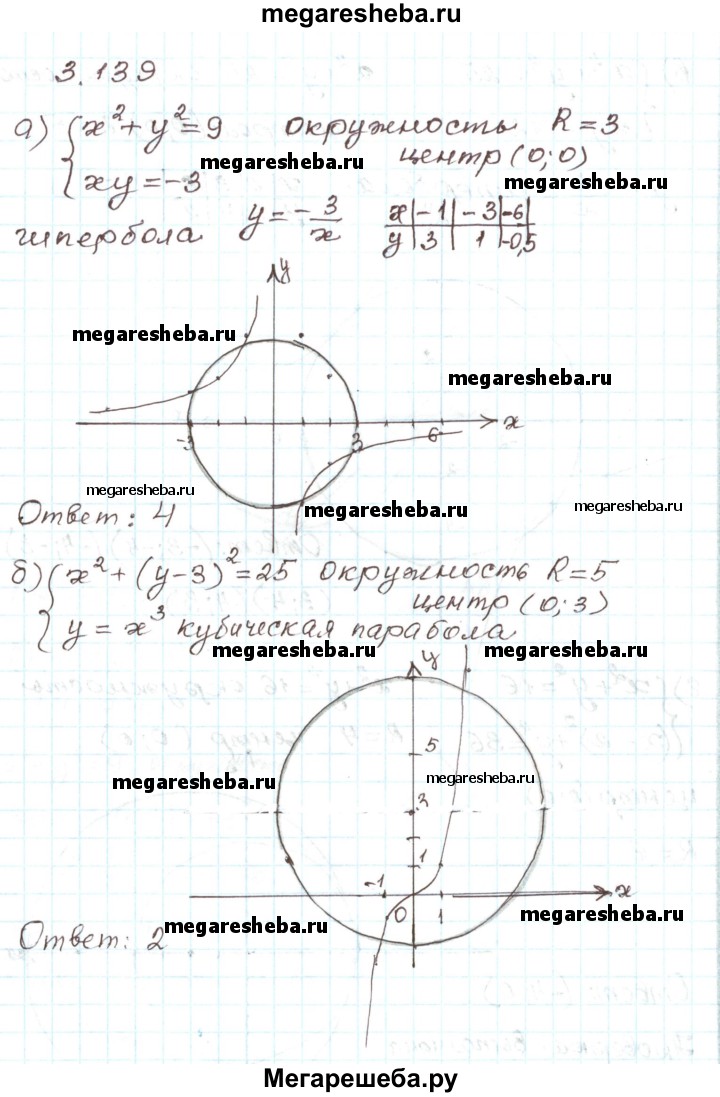 megaresheba.ru
3.139
а) { x² + y² = 9 окружность R = 3
megaresheba.ru центр (0; 0)
{ xy = -3 megaresheba.ru
гипербола y = -3/x
x | -1 | -3 | -6 |
y | 3 | 1 | -0,5
y
megaresheba.ru
megaresheba.ru
-3 3 6 x
megaresheba.ru
Ответ: 4 megaresheba.ru megaresheba.ru
б) { x² + (y-3)² = 25 окружность R = 5
центр (0; 3)
{ y = x³ кубическая парабола
megaresheba.ru megaresheba.ru
y
5
megaresheba.ru megaresheba.ru
3
1
-1 x
0 1
megaresheba.ru megaresheba.ru
Ответ: 2
Мегарешеба.ру